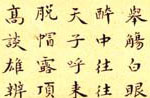 舉觴白眼
醉中往往
天子呼来
脫帽露頂
高談雄辨